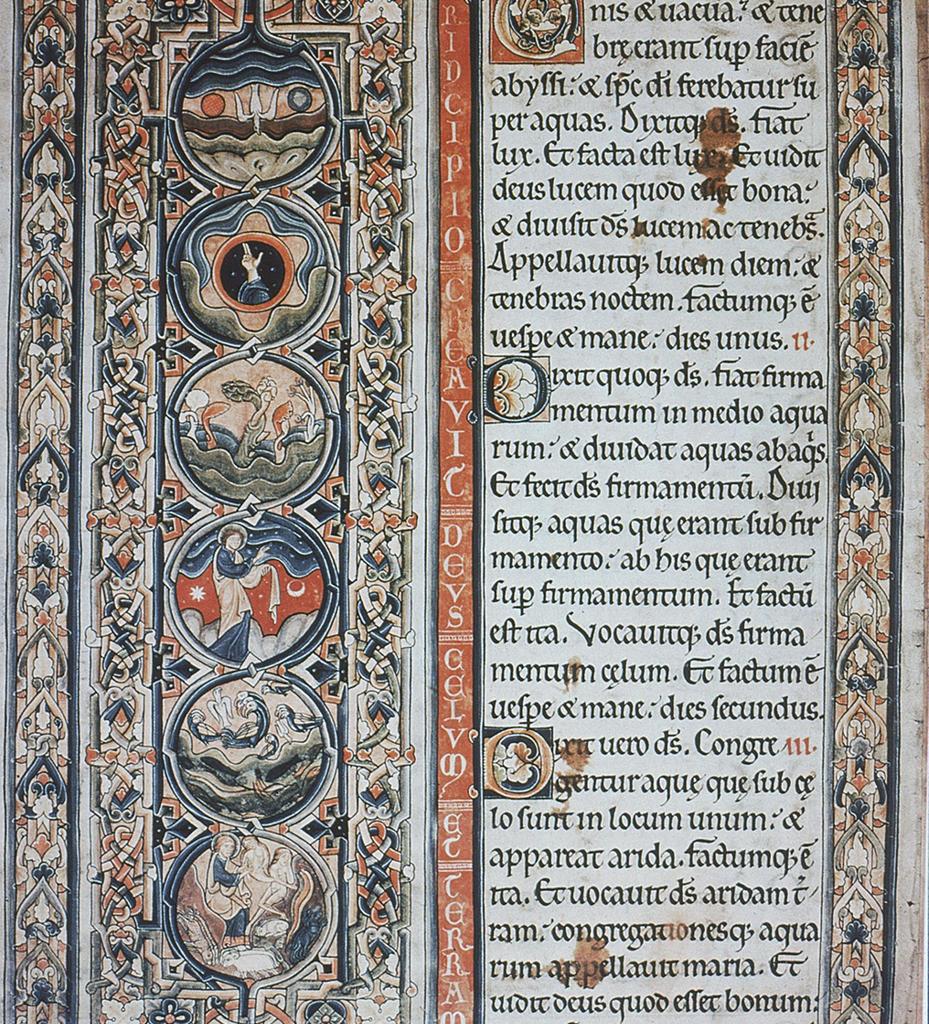 RINCIPIO CREAVIT DEUS CELUM ET TERRAM
nis & uacua. & tene
bręerant sup faciē
abyssi. & sp̄c dī ferebatur su
peraquas. Dixitqꝫ ds. fiat
lux. Et facta est lux. Et uidit
deus lucem quod esset bona.
& diuisit ds̄ lucem ac tenebs̄.
Appellauitqꝫ lucem diem. &
tenebras noctem. factumqꝫ ē
uespe & mane. dies unus. II.
Dixit quoqꝫ ds̄. fiat firma
mentum in medio aqua
rum. & diuidat aquas abaqs.
Et fecit ds̄ firmamentū. Diui
sitqꝫ aquas quę erant sub fir
mamento. ab his quę erant
sup firmamentum. Et factū
est ita. Vocauitqꝫ ds̄ firma
mentum cęlum. Et factum ē
uespe & mane. dies secundus.
Dixit uero ds̄. Congre III.
gentur aque quę sub cę
lo sunt in locum unum. &
appareat arida. factumqꝫ ē
ita. Et uocauit ds̄ aridam t̄
ram. congregationesqꝫ aqua
rum appellauit maria. Et
uidit deus quod esset bonum.